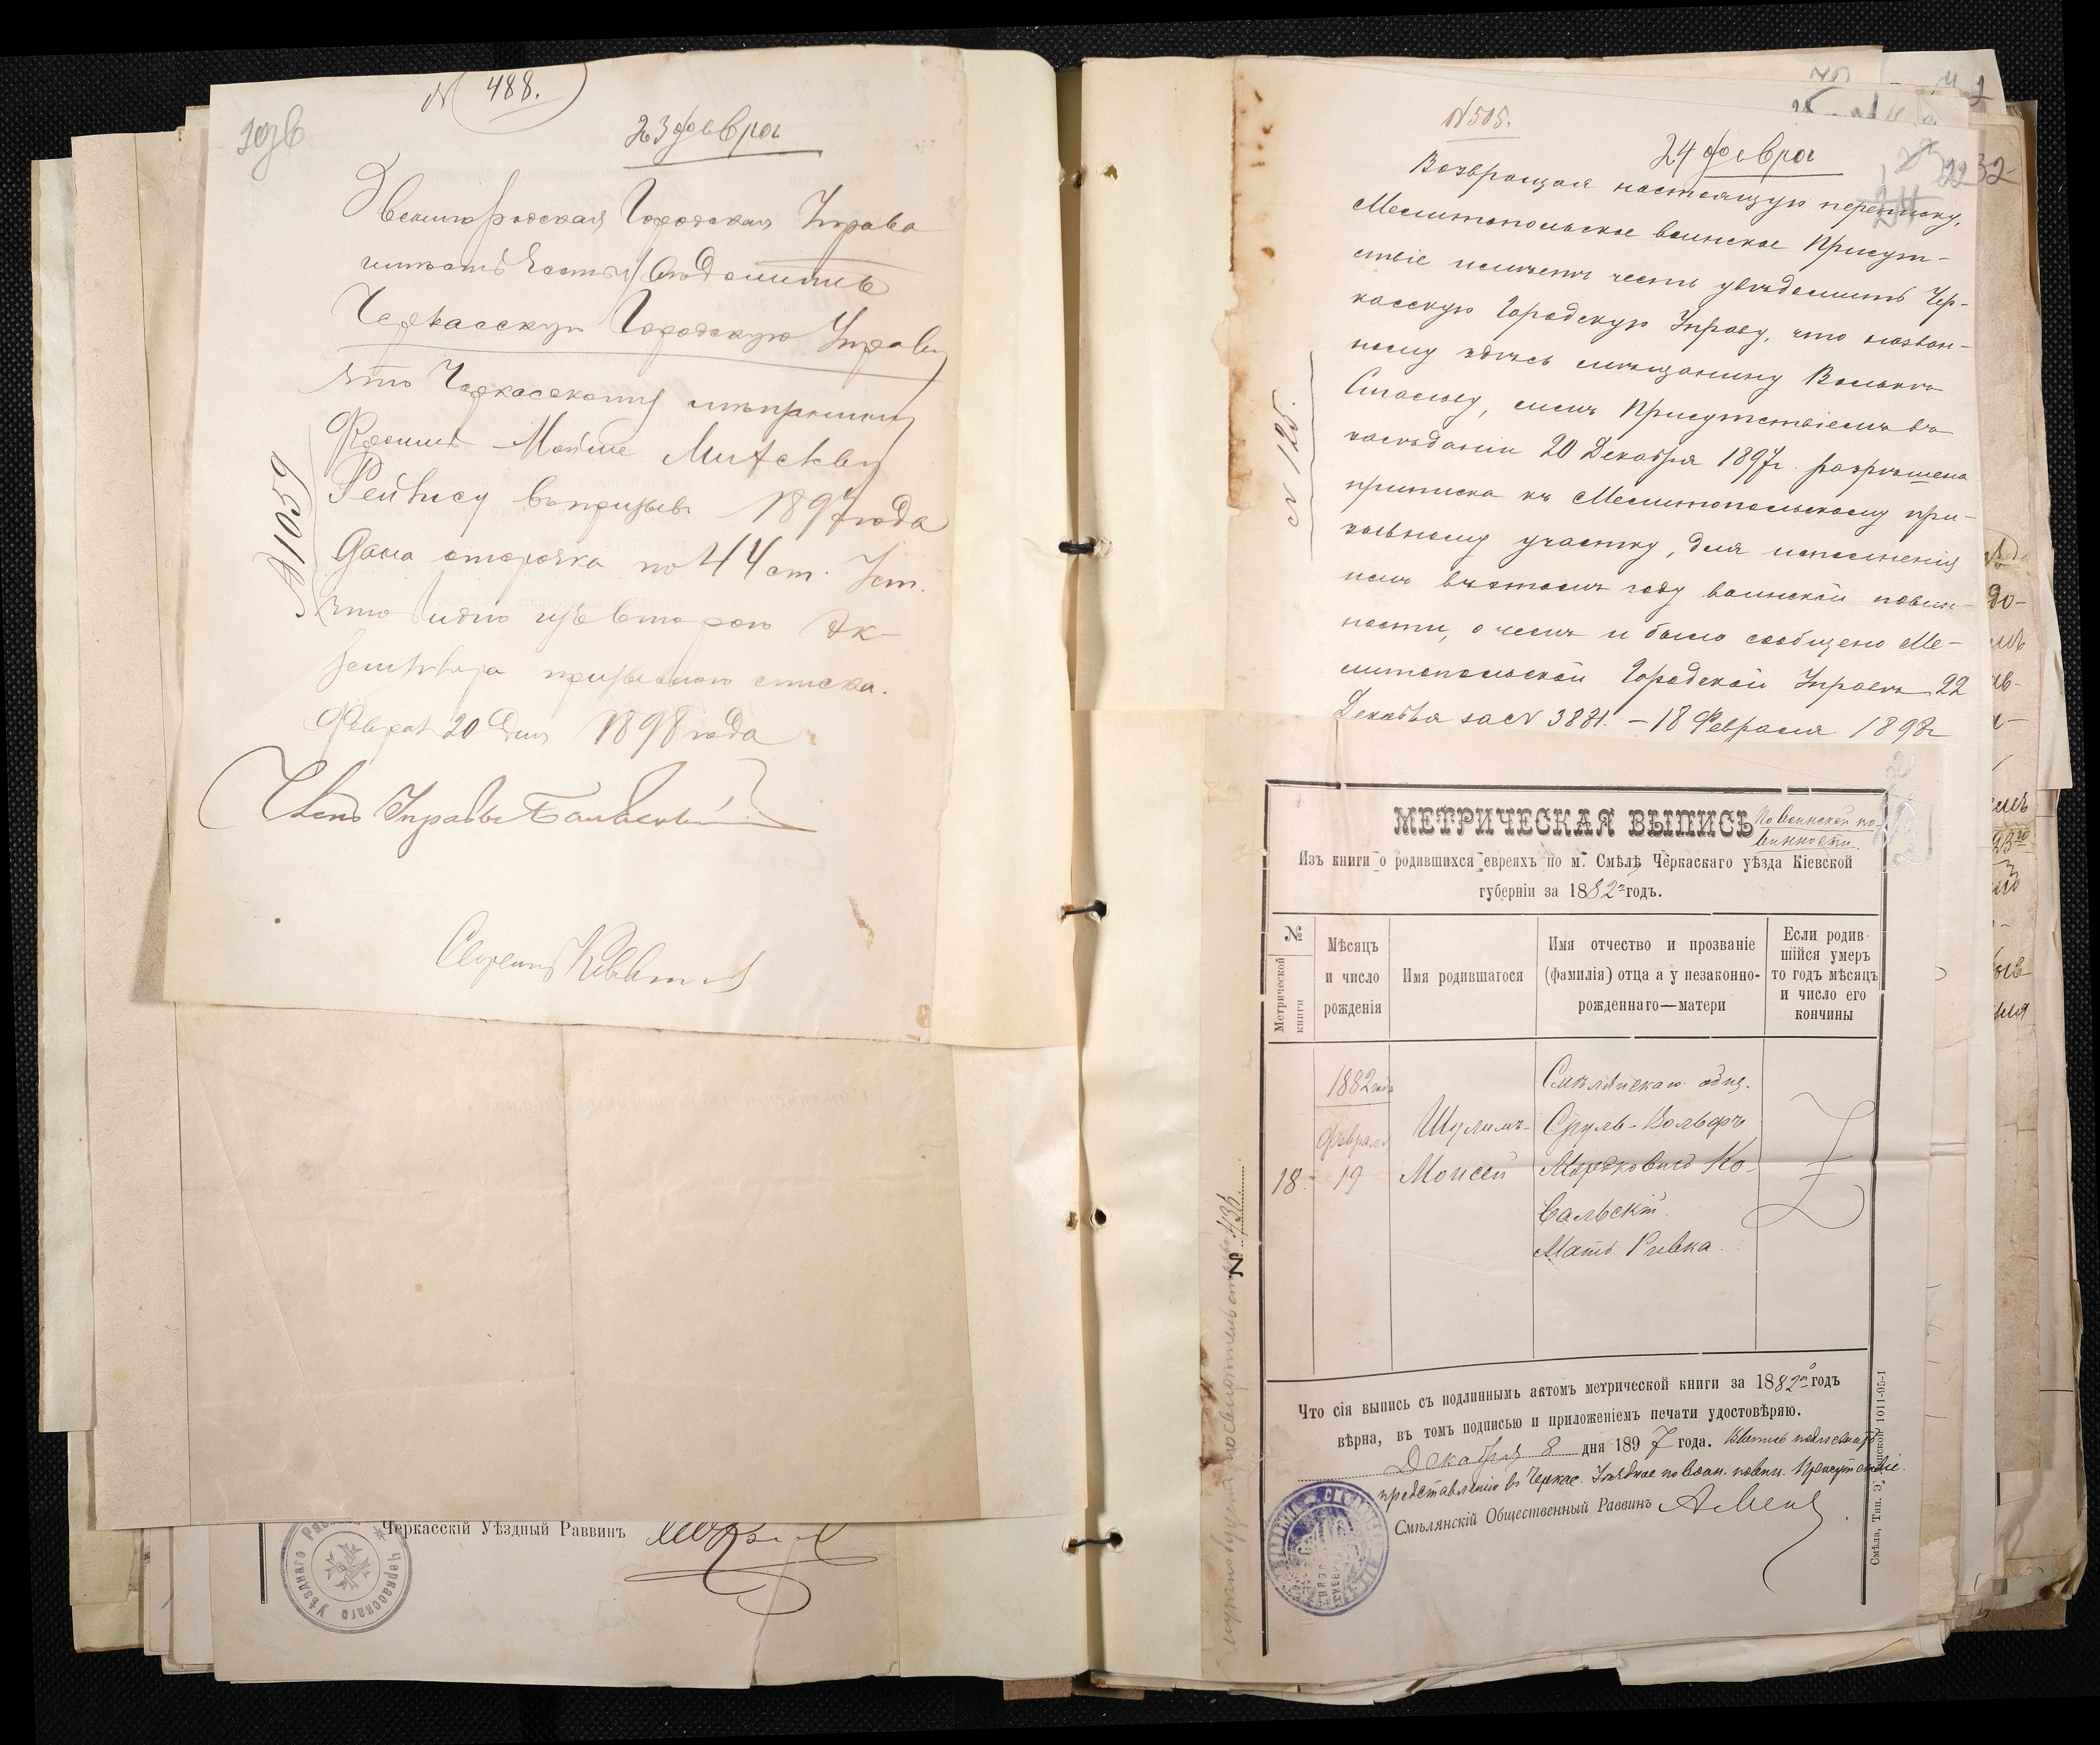 № 488.
23 февра
Звенигородская Городская Управа
имѣетъ честь увѣдомить
Черкасскую Городскую Управу
что Черкасскому мѣщанину
Мошке
въ призывъ 1897 года
дана отсрочка по 44 ст. Уст.
что видно изъ второго эк-
земпляра призывного списка.
Февраля 20 дня 1898 года
Членъ Управы
Секретарь
№ 1059
Черкасскій Уѣздный Раввинъ
Черкасскаго Уѣзднаго
№ 505.
24 февра
2232
24
Возвращая настоящую переписку,
Мелитопольское воинское Присут-
ствіе имѣетъ честь увѣдомить Чер-
касскую Городскую Управу, что назван-
ному здѣсь мѣщанину Волькѣ
симъ Присутствіемъ въ
засѣданіи 20 Декабря 1897 г. разрѣшена
приписка къ Мелитопольскому при-
зывному участку, для исполненія
имъ въ этомъ году воинской повин-
ности, о чемъ и было сообщено Ме-
литопольской Городской Управѣ 22
Декабря за № 3871. – 18 Февраля 1898 г
№ 125.
МЕТРИЧЕСКАЯ ВЫПИСЬ По воинской по-
винности.
Изъ книги о родившихся евреяхъ по м. Смѣлѣ Черкаскаго уѣзда Кіевской
губерніи за 1882 годъ.
№ Метрической книги
Мѣсяцъ и число рожденія
Имя родившагося
Имя отчество и прозваніе (фамилія) отца а у незаконно-рожденнаго—матери
Если родив-шійся умеръ то годъ мѣсяцъ и число его кончины
1882 года Смѣлянскаго общ.
Февраля Шулимъ- Сруль-Вольфъ
18. 19 Моисей Мордковичъ Ко-
вальскій.
Мать Ривка.
Что сія выпись съ подлиннымъ актомъ метрической книги за 1882 годъ
вѣрна, въ томъ подписью и приложеніемъ печати удостовѣряю.
Декабря 8 дня 1897 года. Выпись подлежитъ
представленію въ Черкас. Уѣздное по воин. повин. Присутствіе.
Смѣлянскій Общественный Раввинъ
Смѣла, Тип. 1011-95-1
№